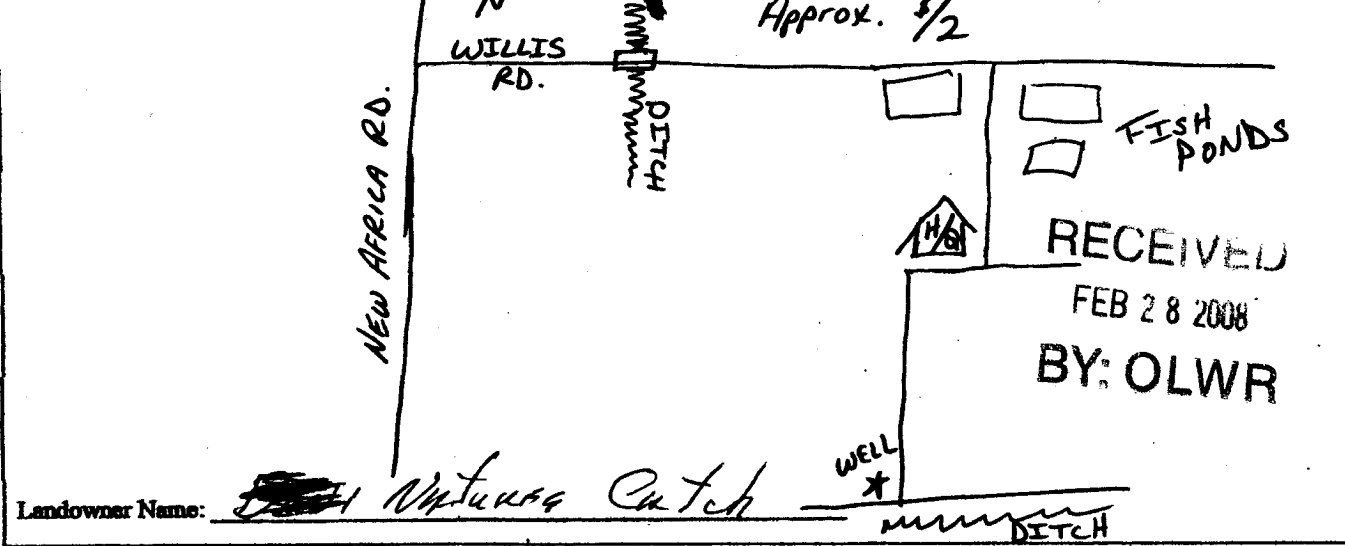 N
Approx. 1/2
WILLIS
RD.
DITCH
NEW AFRICA RD.
FISH
PONDS
H/Q
RECEIVED
FEB 28 2008
BY: OLWR
WELL
Landowner Name: Natures Catch
DITCH